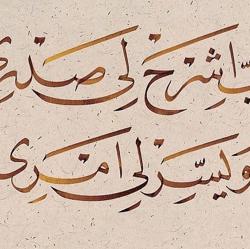 بّ اشرح لي صدري
ويسر لي امري